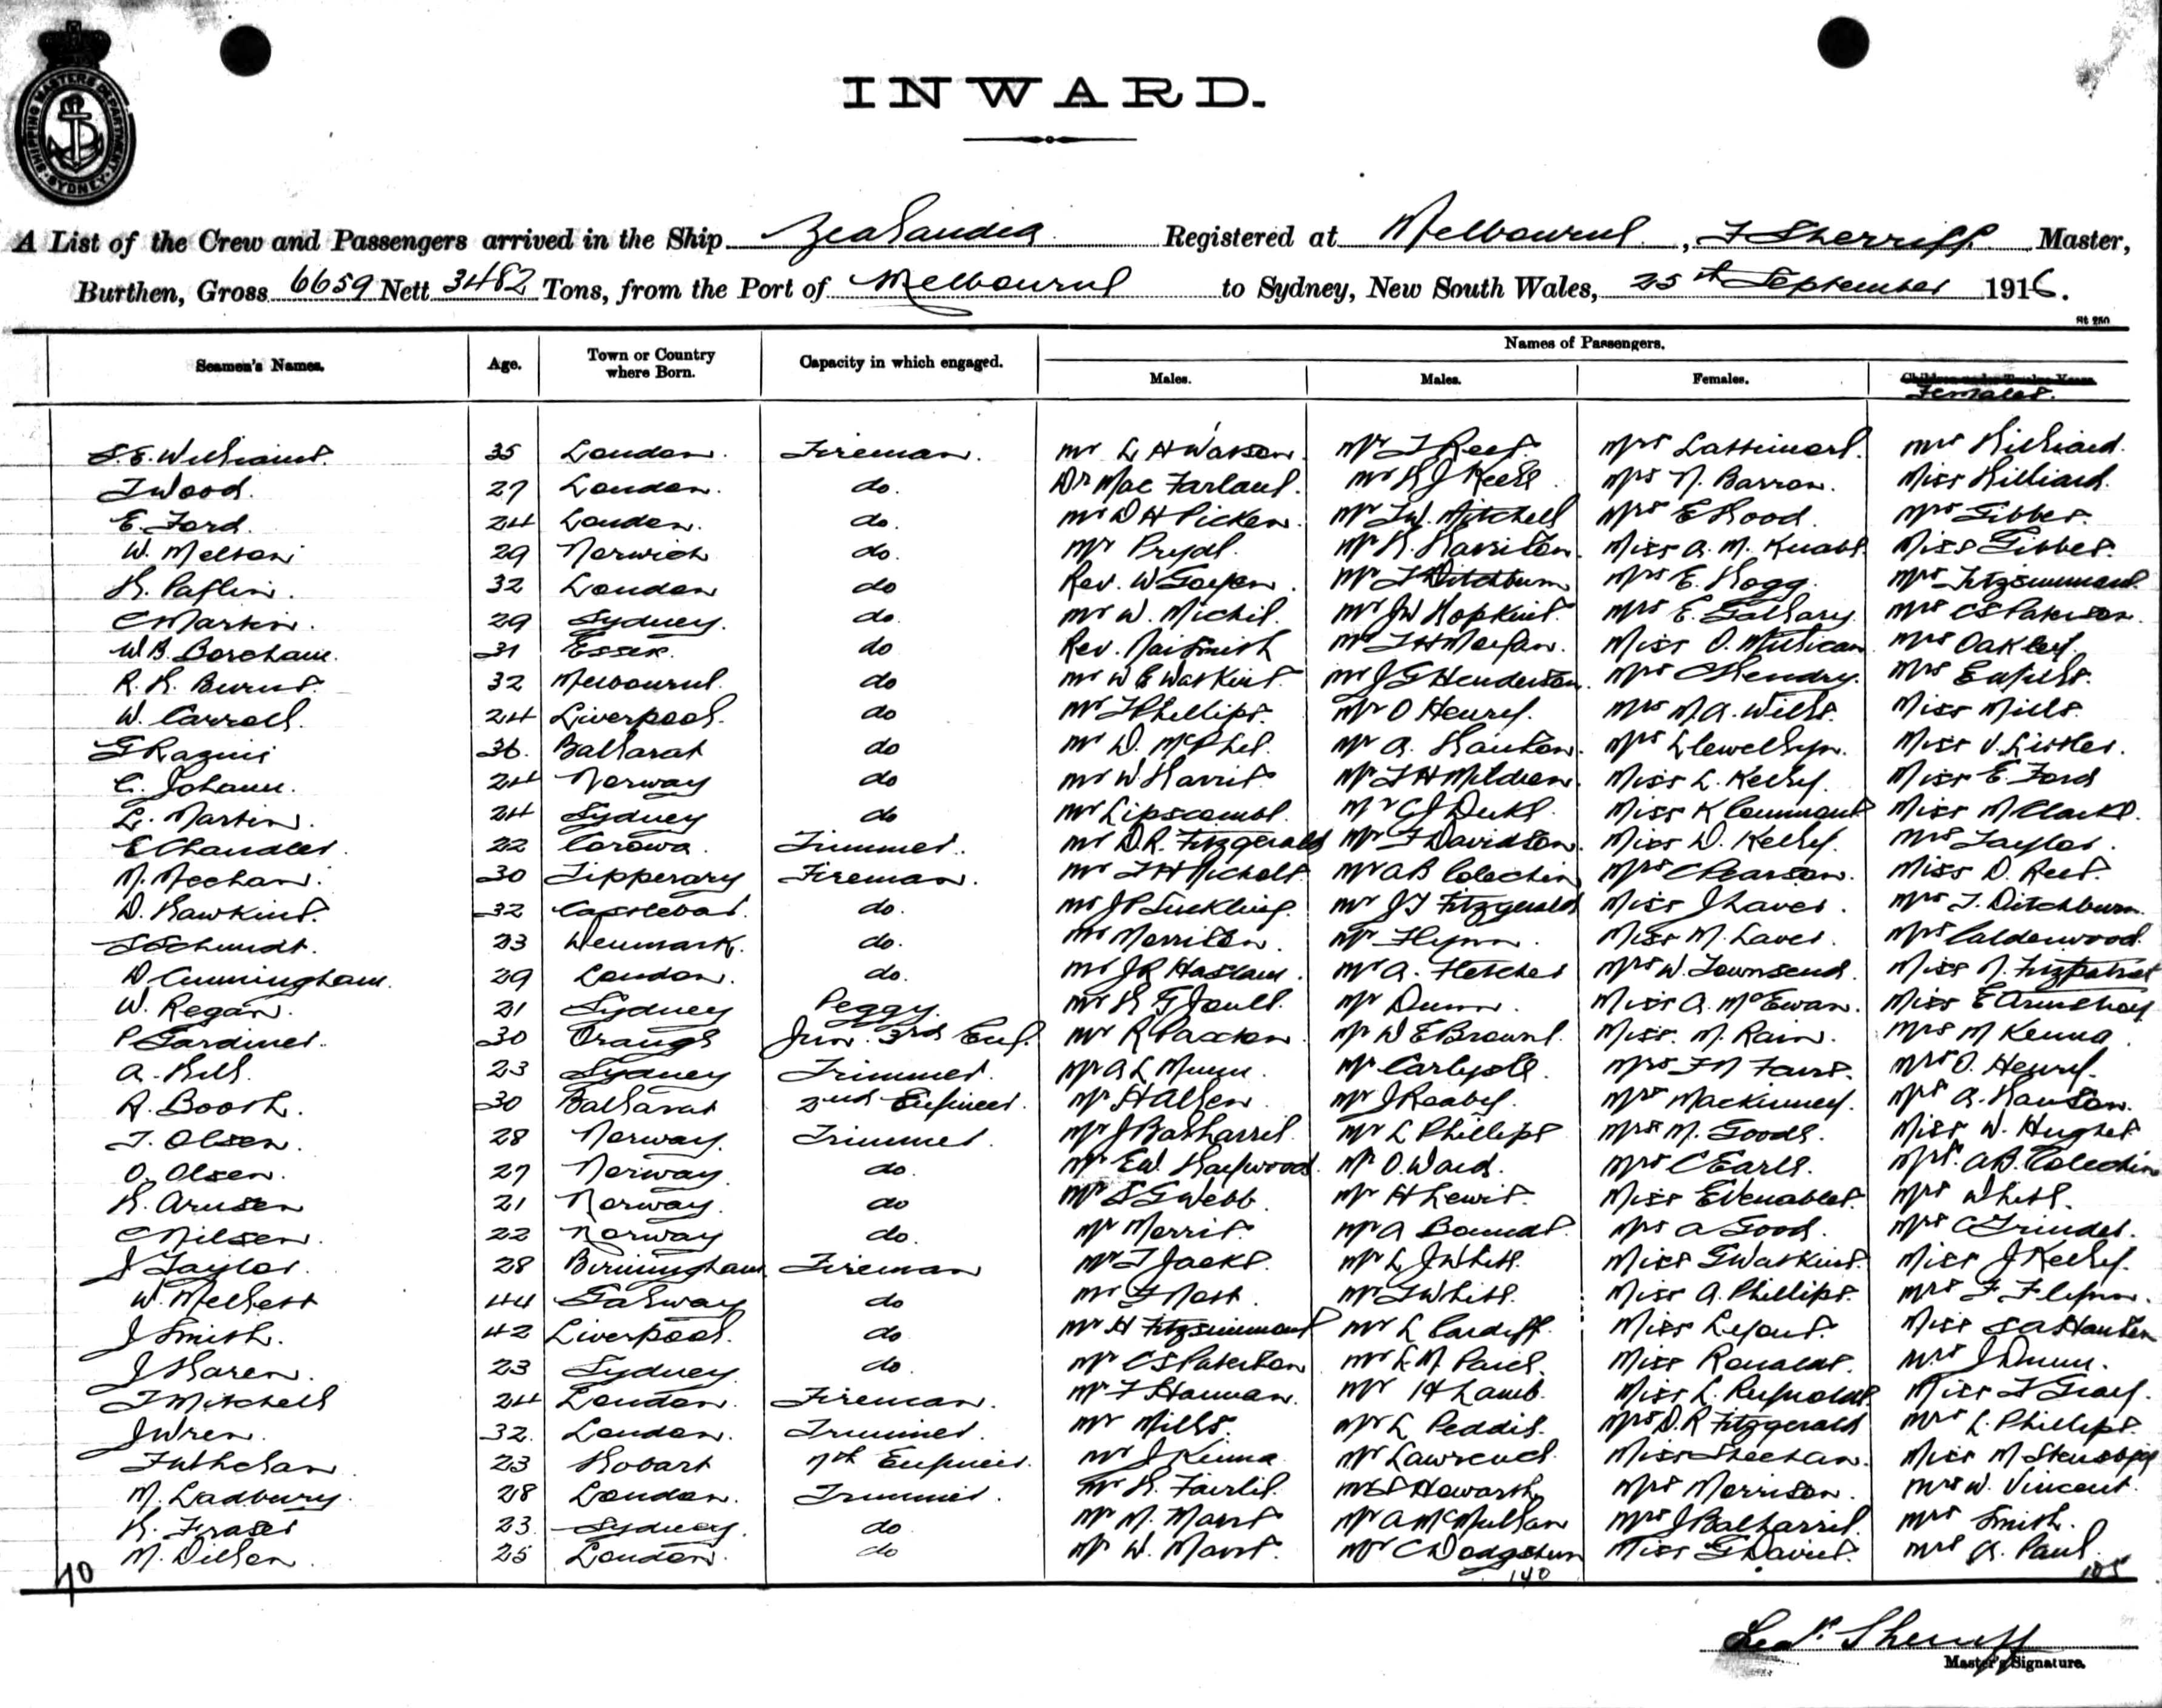 SHIPPING MASTERS DEPARTMENT SYDNEY
INWARD.
A List of the Crew and Passengers arrived in the Ship Zealandia Registered at Melbourne, F Sherriff Master,
Burthen, Gross 6659 Nett 3482 Tons, from the Port of Melbourne to Sydney, New South Wales, 25th September 1916.
St 250
Seamen's Names. Age. Town or Country where Born. Capacity in which engaged. Names of Passengers.
Males. Males. Females. Children under Twelve Years
Females.
S.E. Williams. 35 London. Fireman. Mr L H Watson. Mr T Rees. Mrs Lattimore. Mrs Hilliard.
T Wood. 27 London. do. Dr Mac Farland. Mr H J Keele. Mrs N. Barron. Miss Hilliard.
E. Ford. 24 London. do. Mr D H Picken. Mr T.W. Mitchell Mrs E Hood. Mrs Gibbes.
W. Melson 29 Norwich do. Mr Pryde. Mr H. Harrison. Miss A. M. Knabe. Miss Gibbes.
H. Paflin. 32 London do Rev. W Goyen. Mr T Ditchburn Mrs E. Hogg. Mrs Fitzsimmons.
C Martin. 29 Sydney. do. Mr W. Michie. Mr J W Hopkins. Mrs E. Mrs C S Paterson.
W B. Boreham. 31 Essex. do Rev. Naismith Mr T H Morgan. Miss O. Mrs Oakley.
R. H. Burns. 32 Melbourne. do Mr W E Watkins. Mr J G Henderson. Mrs C Hendry. Mrs
W. Carroll. 24 Liverpool. do Mr T Phillips. Mr O Henry. Mrs M. A. Wills. Miss Mills.
G 36. Ballarat do Mr D. McPhee. Mr A. Hanson. Mrs Llewellyn. Miss V. Listler.
C. Johann. 24 Norway do Mr W Harris. Mr T H Mildren. Miss L. Kelly. Miss E. Ford
L. Martin. 24 Sydney do Mr Lipscombe. Mr C J Duke. Miss K Miss M Clarke.
E Chandler. 22 Corowa. Trimmer. Mr D. R. Fitzgerald Mr F Davidson. Miss D. Kelly. Mrs Taylor.
M. Meehan. 30 Tipperary Fireman. Mr T H Nicholls. Mr A B Colechin Mrs C Pearson. Miss D. Rees.
D. Hawkins. 32 Castlebar. do. Mr J P Suckling. Mr J T Fitzgerald Miss J Laver. Mrs T. Ditchburn.
S Schmidt. 23 Denmark. do. Mr Morrison. Mr Flynn. Miss M. Laver. Mrs Calderwood.
D Cunningham. 29 London. do. Mr J R Haslam. Mr A. Fletcher Mrs W. Townsend. Miss N. Fitzpatrick
W. Regan. 21 Sydney Peggy. Mr H G Joull. Mr Dunn. Miss A. McEwan. Miss E Armstrong
P Gardiner. 30 Orange Jun. 3rd Eng. Mr R Paxton. Mr W E Browne. Miss. M. Rain. Mrs M Kenna
A. Bell. 23 Sydney Trimmer. Mr A L Munn. Mr Carlysle. Mrs F N Mrs O. Henry.
A. Booth. 30 Ballarat 2nd Engineer. Mr H Allen. Mr J Roabey. Mrs Mackinney. Mrs A. Hanson.
T. Olsen. 28 Norway. Trimmer. Mr J Balharrie. Mr L Phillips Mrs M. Goode. Miss W. Hughes
O. Olsen. 27 Norway. do. Mr E W. Haywood. Mr O. Ward. Mrs C Earle. Mrs. A B. Colechin
H. Arnsen 21 Norway. do Mr S G Webb. Mr H Lewis. Miss E Venables. Mrs White.
C Nilsen. 22 Norway do. Mr Morris. Mr A Mrs A Good. Mrs C Grinder.
J Taylor. 28 Birmingham. Fireman Mr T Jacks. Mr L J White. Miss G Watkins. Miss J Kelly.
W. Mellett 44 Galway do Mr F Mott. Mr T White. Miss A. Phillips. Mrs F. Flynn.
J Smith. 42 Liverpool. do. Mr H Fitzsimmons Mr L Cardiff. Miss Lyons. Miss S A Hansen
J Haren. 23 Sydney do. Mr C S Paterson Mr L M Miss Ronalds. Mrs J Dunn.
T Mitchell 24 London. Fireman. Mr F Hannan. Mr H Lamb. Miss L. Reynolds. Miss T Gray.
J Wren. 32. London. Trimmer. Mr Mills. Mr L Peddie. Mrs D. R Fitzgerald Mrs L. Phillips.
23 Hobart 7th Engineer. Mr J Kenna Mr Lawrence. Miss Sheehan. Miss M
M. Ladbury. 28 London. Trimmer. Mr H. Fairlie. Mr S Howarth Mrs Morrison. Mrs W. Vincent.
H. Fraser 23. Sydney. do Mr M. Mr A McMullan Mrs J Balharrie. Mrs Smith.
M. Dillon. 25 London. do Mr W. Mr C Dodgshun Miss G Davies. Mrs H. Paul.
70 140 105
Sherriff
Master's Signature.